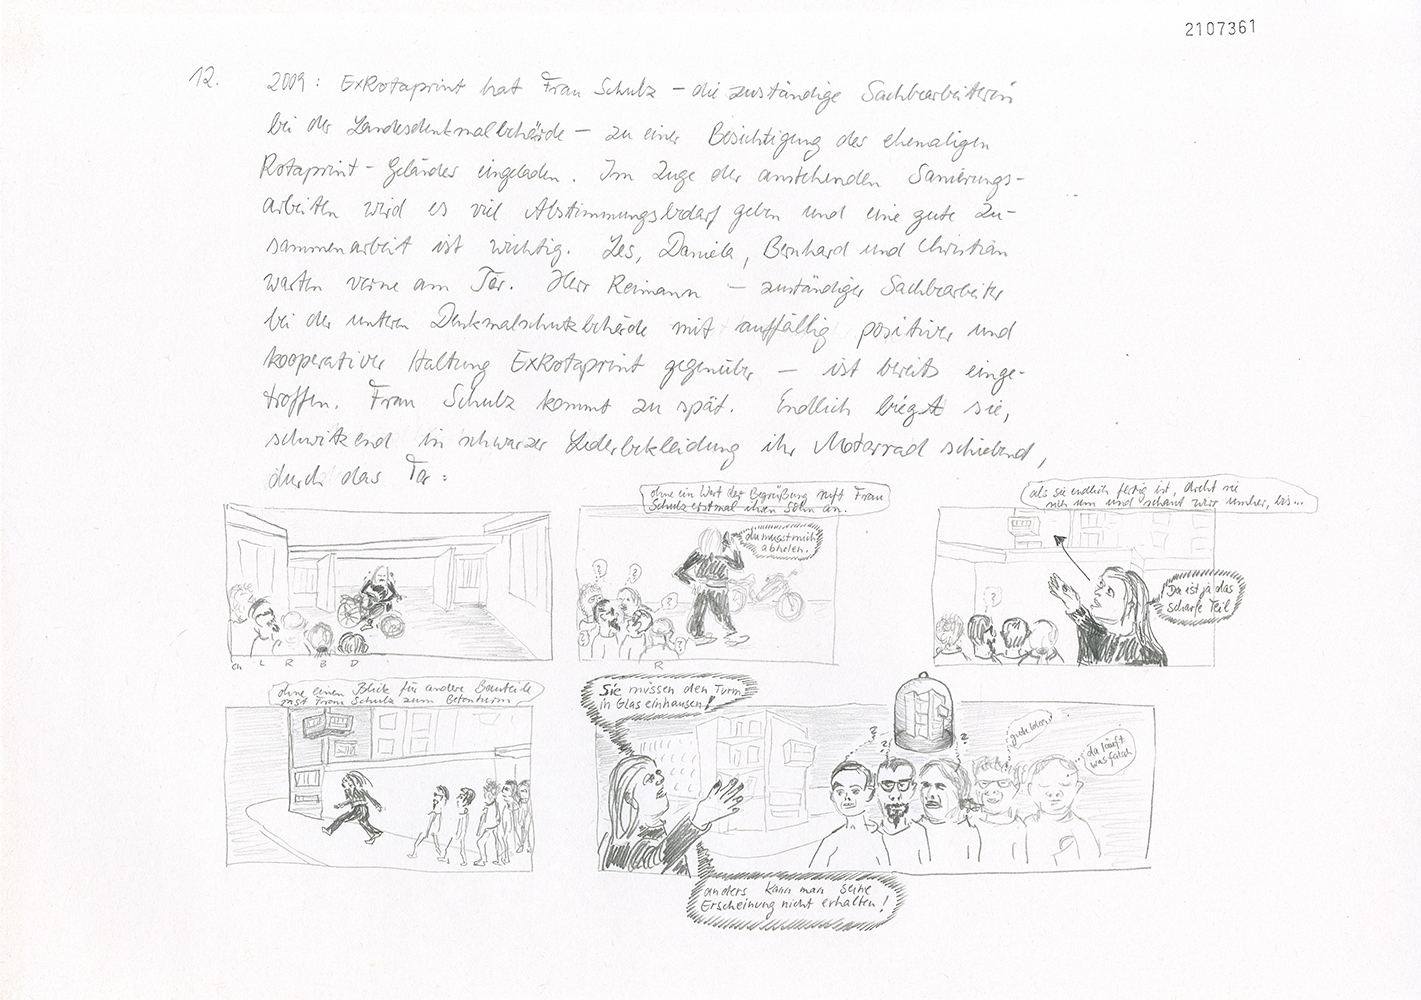 2107361
12. 2009: ExRotaprint hat Frau Schulz – die zuständige Sachbearbeiterin
bei der Landesdenkmalbehörde – zu einer Besichtigung des ehemaligen
Rotaprint-Geländes eingeladen. Im Zuge der anstehenden Sanierungs-
arbeiten wird es viel Abstimmungsbedarf geben und eine gute Zu-
sammenarbeit ist wichtig. Les, Daniela, Bernhard und Christian
warten vorne am Tor. Herr Reimann – zuständiger Sachbearbeiter
bei der unteren Denkmalschutzbehörde mit auffällig positiver und
kooperativer Haltung ExRotaprint gegenüber – ist bereits einge-
troffen. Frau Schulz kommt zu spät. Endlich biegt sie,
schwitzend in schwarzer Lederbekleidung ihr Motorrad schiebend,
durch das Tor:
Ch L R B D
ohne ein Wort der Begrüßung ruft Frau
Schulz erstmal ihren Sohn an.
du musst mich
abholen.
?
?
?
?
?
R
als sie endlich fertig ist, dreht sie
sich um und schaut wirr umher, bis...
?
Da ist ja das
scharfe Teil
ohne einen Blick für andere Bauteile
rast Frau Schulz zum Betonturm
Sie müssen den Turm
in Glas einhausen!
?
?
?
gute Idee!
da läuft
was falsch
anders kann man seine
Erscheinung nicht erhalten!